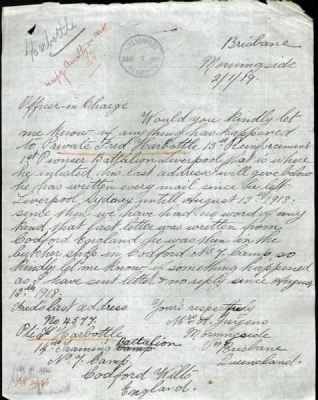 Harbottle
Brisbane
Morningside
2/1/19.
Officer-in Charge
Would you kindly let
me know if anything has happened
to Private Fred Harbottle 13th Reinforcement
1st Pioneer Battalion Liverpool that is where
he enlisted his last address I will give below
he has written every mail since he left
Liverpool, Sydney until August 13th 1918.
since then we have had no word of any
kind, that last letter was written from
Codford England he was then in the
butcher shop in Codford No 7 Camp so
kindly let me know if something happened
as I have sent letters & no reply since August
13th 1918.
Fred's last address Yours respectfully
No 4377. Mrs A. Jurgens
Pte F. Harbottle Morningside
14th Training Battalion Brisbane
No 7 Camp Queensland.
Codford Wilts
England.